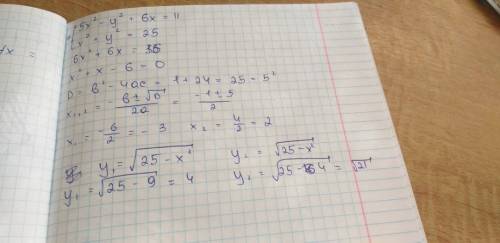 5x² - y² + 6x = 11
x² + y² = 25
6x² + 6x = 36
x² + x - 6 = 0
D = b² - 4ac = 1 + 24 = 25 = 5²
x₁,₂ = -b ± √D / 2a = -1 ± 5 / 2
x₁ = -6/2 = -3 x₂ = 4/2 = 2
y₁ = √25 - x² y₂ = √25 - x²
y₁ = √25 - 9 = 4 y₂ = √25 - 4 = √21